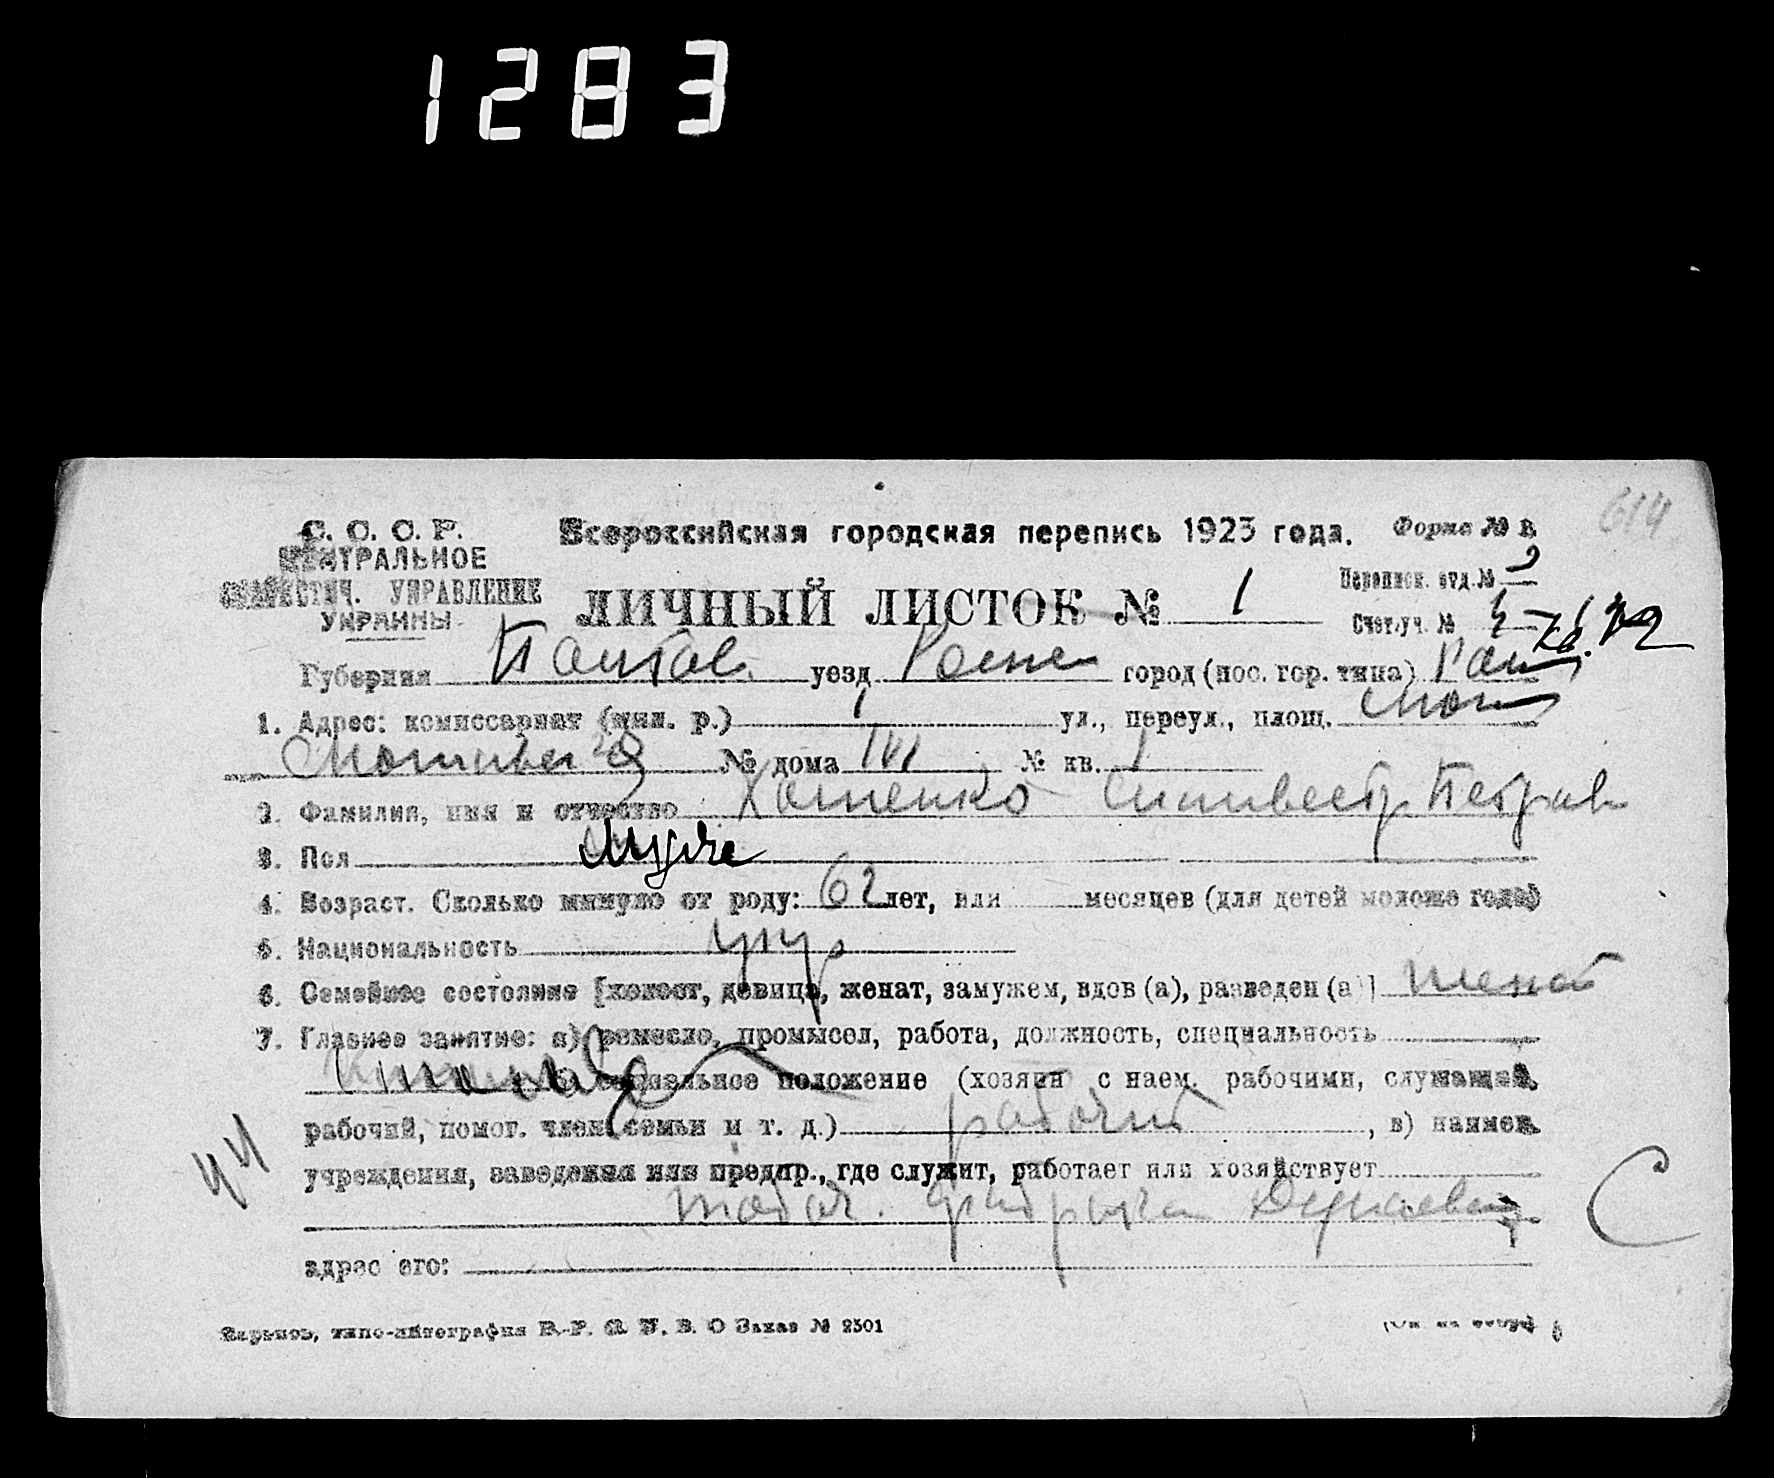 1283
614
С. С. С. Р.
ЦЕНТРАЛЬНОЕ
СТАТИСТИЧ. УПРАВЛЕНИЕ
УКРАИНЫ
Всероссийская городская перепись 1923 года.
Форма № В
ЛИЧНЫЙ ЛИСТОК № 1
Переписн. отд. №
Счет. уч. №
Губерния Полтав. уезд Ромен город (пос. гор. типа) Ром
1. Адрес: комиссариат (мил. р.) 1 ул., переул., площ.
№ дома № кв. 1
2. Фамилия, имя и отчество Хоменко Сильвестр Петров
3. Пол муж
4. Возраст. Сколько минуло от роду: 62 лет, или месяцев (для детей моложе года)
5. Национальность укр
6. Семейное состояние [холост, девица, женат, замужем, вдов (а), разведен (а)] женат
7. Главное занятие: а) ремесло, промысел, работа, должность, специальность
б) социальное положение (хозяин с наем. рабочими, служащий,
рабочий, помог. член семьи и т. д.) рабочий , в) наимен.
учреждения, заведения или предпр., где служит, работает или хозяйствует
табач. фабрика
адрес его:
44
С
Харьков, типо-литография Заказ № 2501